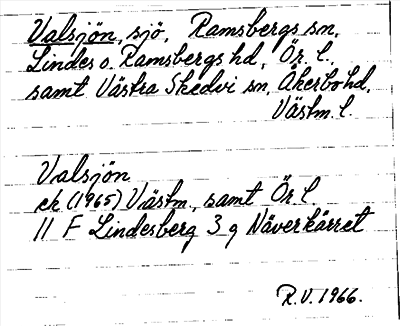 Valsjön, sjö, Ramsbergs sn,
Lindes o. Ramsbergs hd, Ör. l.,
samt Västra Skedvi sn, Åkerbo hd,
Västm. l.
Valsjön
ek (1965) Västm., samt Ör l.
11 F Lindesberg 3 g Näverkärret
R.V. 1966.